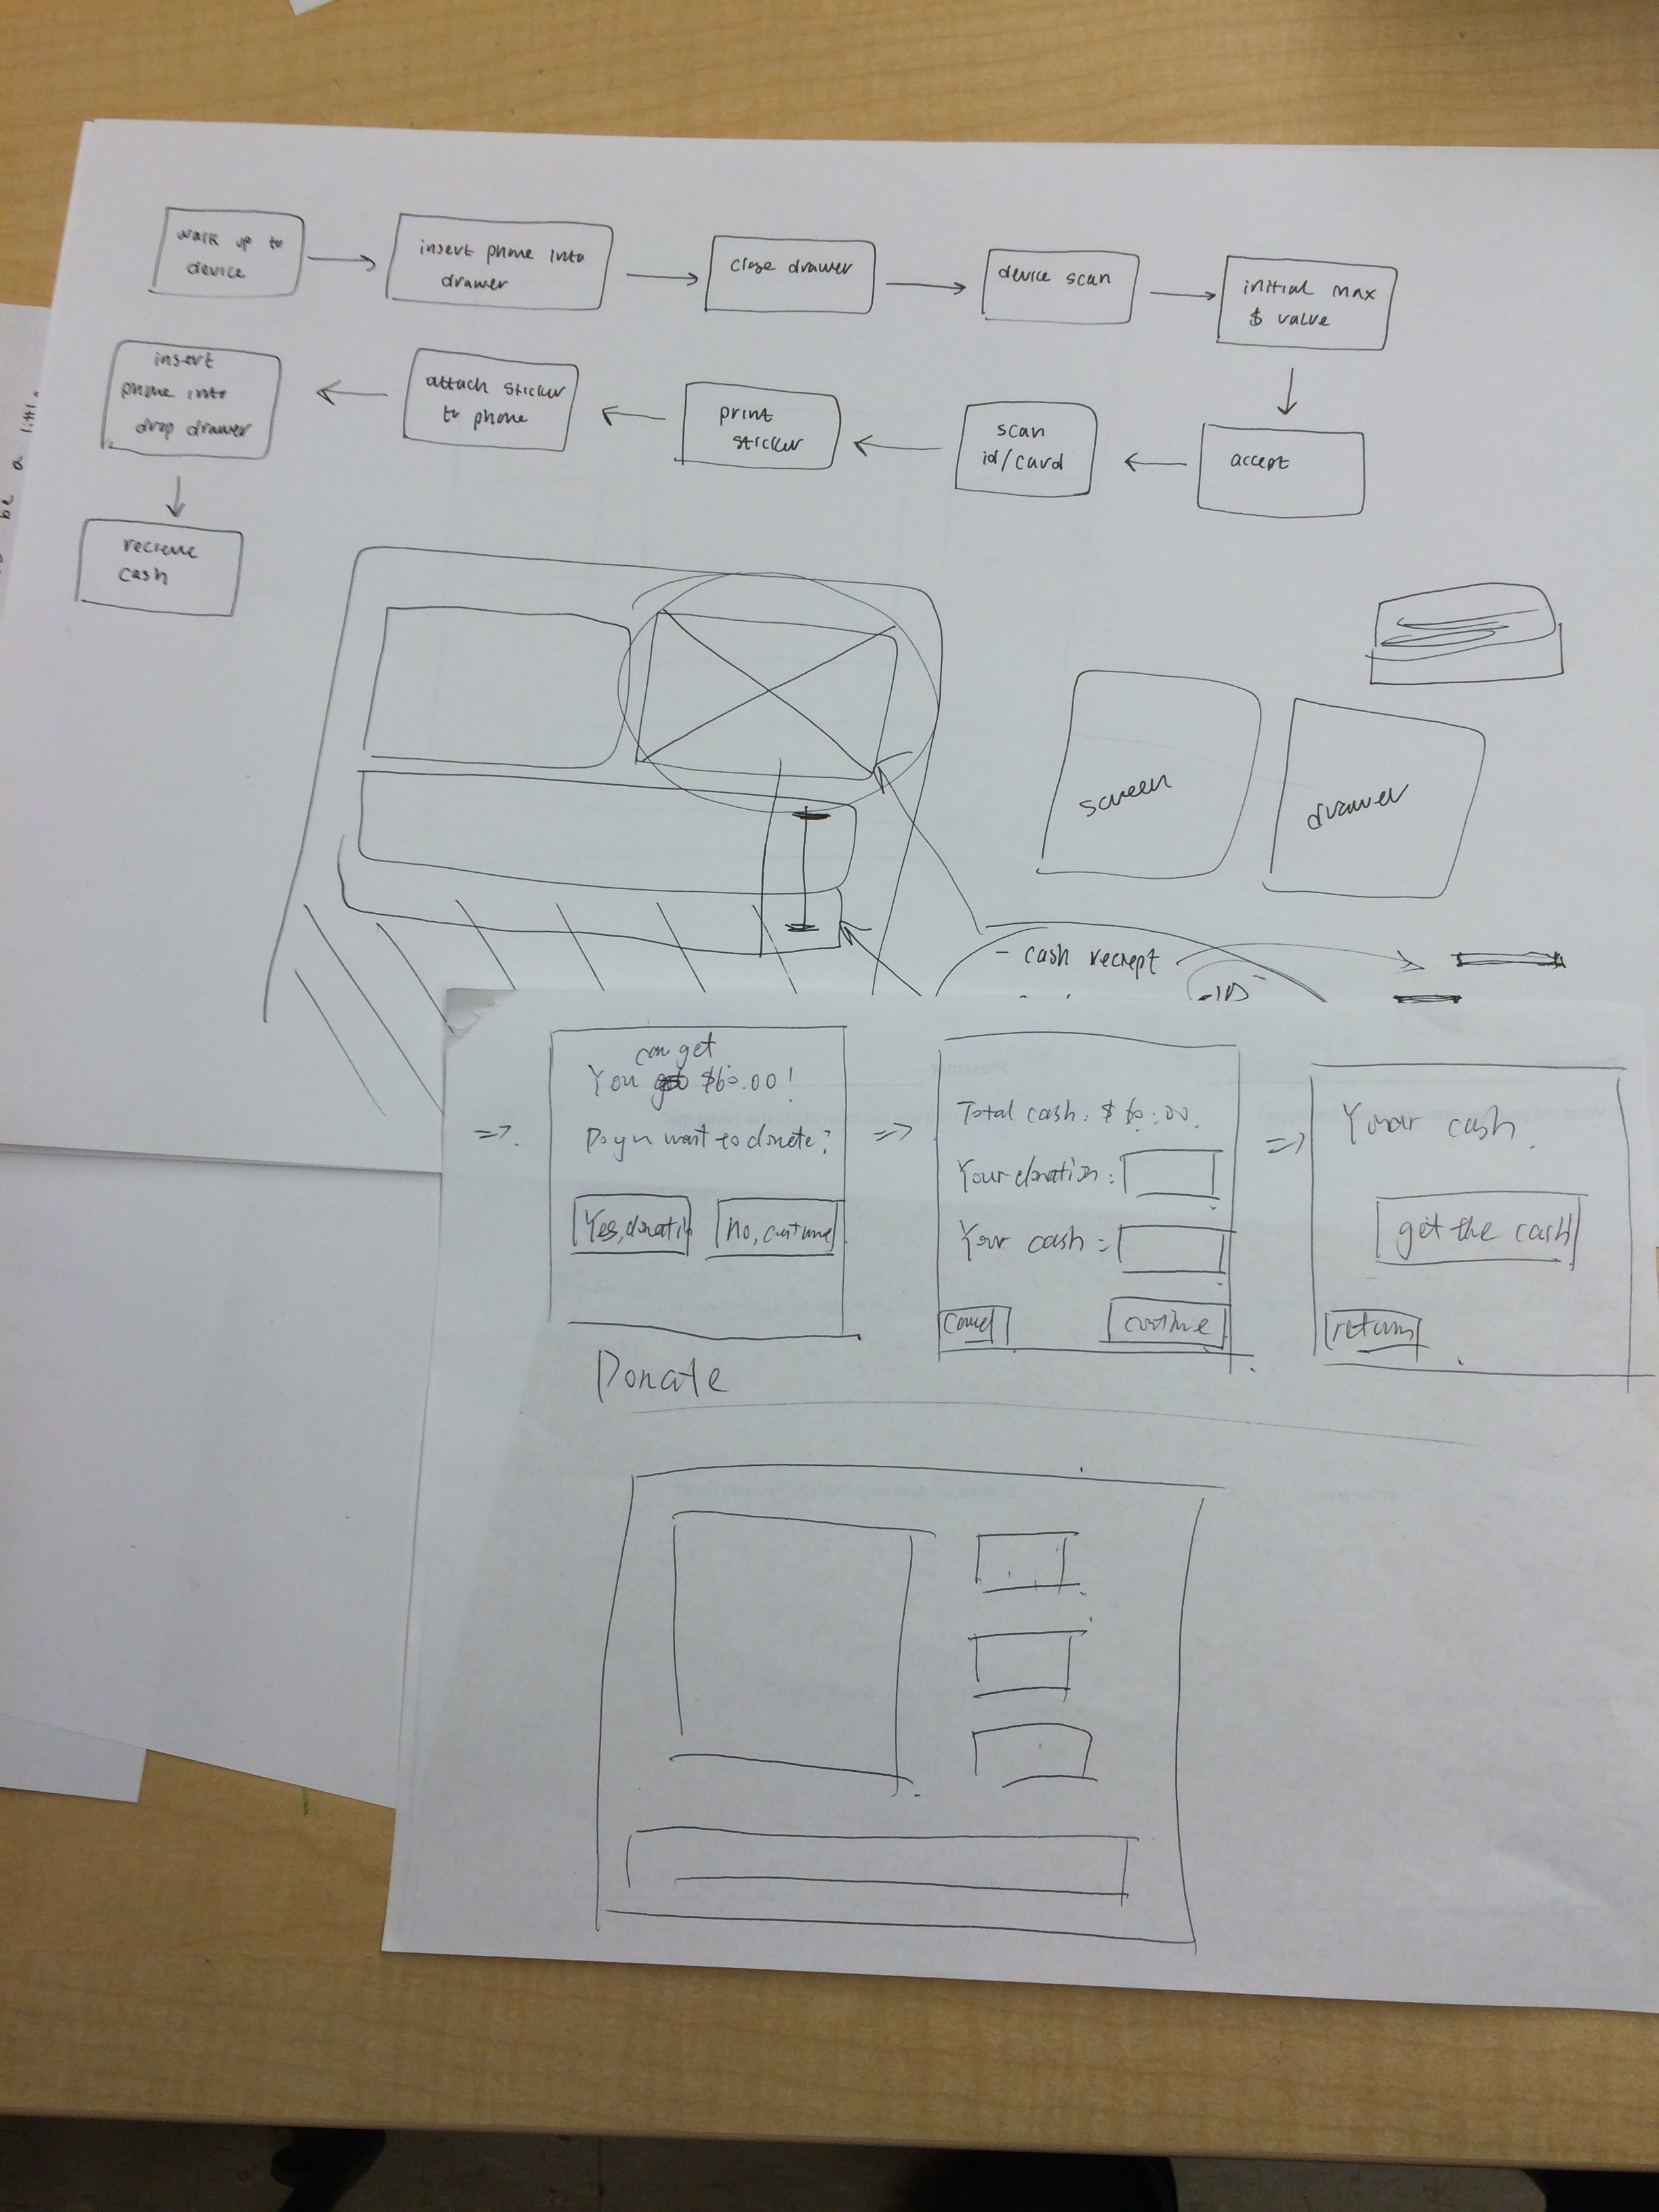 walk up to
device
insert phone into
drawer
close drawer
device scan
initial max
$ value
accept
scan
id/card
print
sticker
attach sticker
to phone
insert
phone into
drop drawer
recieve
cash
be a littl
screen
drawer
- cash reciept
- ID
can get
You $60.00!
Do you want to donate?
Yes, donate
No, continue
Donate
Total cash: $60.00.
Your donation:
Your cash:
Cancel
continue
Your cash.
get the cash
return